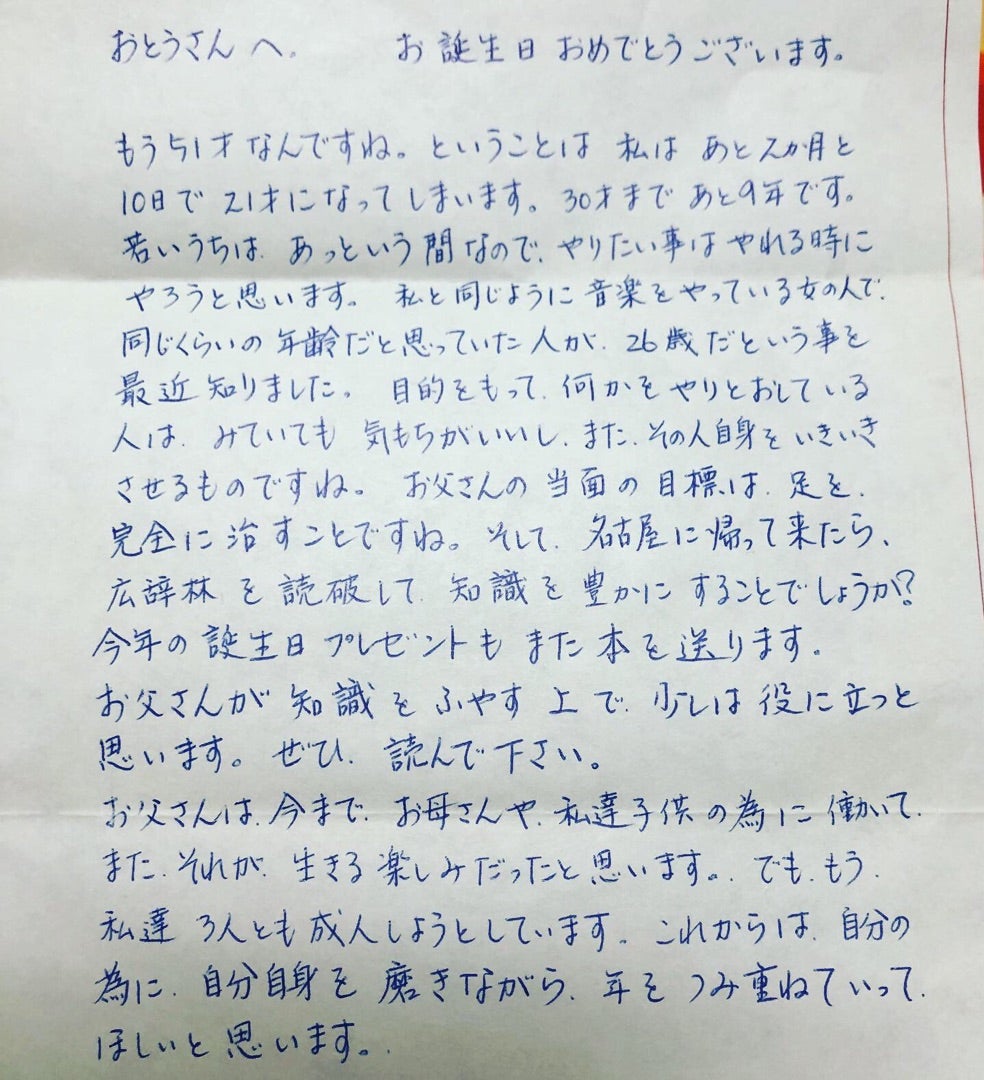 おとうさんへ. お誕生日おめでとうございます。
もう51才なんですね。ということは 私は あと2か月と
10日で 21才になってしまいます。30才まで あと9年です。
若いうちは、あっという間なので、やりたい事は やれる時に
やろうと思います。 私と同じように 音楽をやっている女の人で、
同じくらいの 年齢だと思っていた人が、26歳だという事を
最近 知りました。 目的をもって、何かを やりとおしている
人は、みていても 気もちがいいし、また、その人自身を いきいき
させるものですね。 お父さんの 当面の 目標は、足を、
完全に 治すことですね。そして、名古屋に帰って来たら、
広辞林を 読破して、知識を 豊かに することでしょうか?
今年の 誕生日プレゼントも また 本を 送ります。
お父さんが 知識を ふやす 上で、少しは 役に立つと
思います。 ぜひ、読んで下さい。
お父さんは、今まで、お母さんや、私達子供の為に 働いて、
また、それが、生きる楽しみだったと思います。. でも、もう、
私達 3人とも 成人しようとしています。これからは、自分の
為に、自分自身を 磨きながら、年を つみ重ねていって、
ほしいと 思います。.